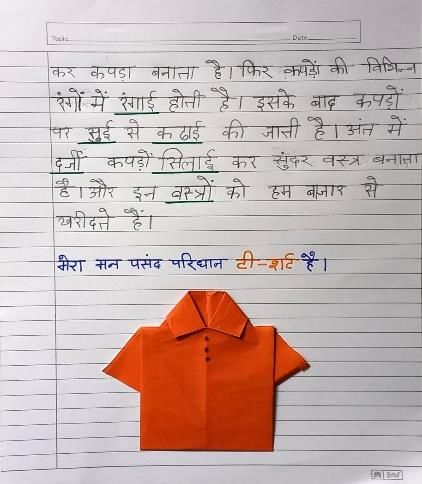 Topic
Date
कर कपड़ा बनाता है। फिर कपड़ों की विभिन्न
रंगों में रंगाई होती है। इसके बाद कपड़ों
पर सुई से कढाई की जाती है। अंत में
दर्जी कपड़ों सिलाई कर सुंदर वस्त्र बनाता
है। और इन वस्त्रों को हम बाजार से
खरीदते हैं।
मेरा मन पसंद परिधान टी-शर्ट है।